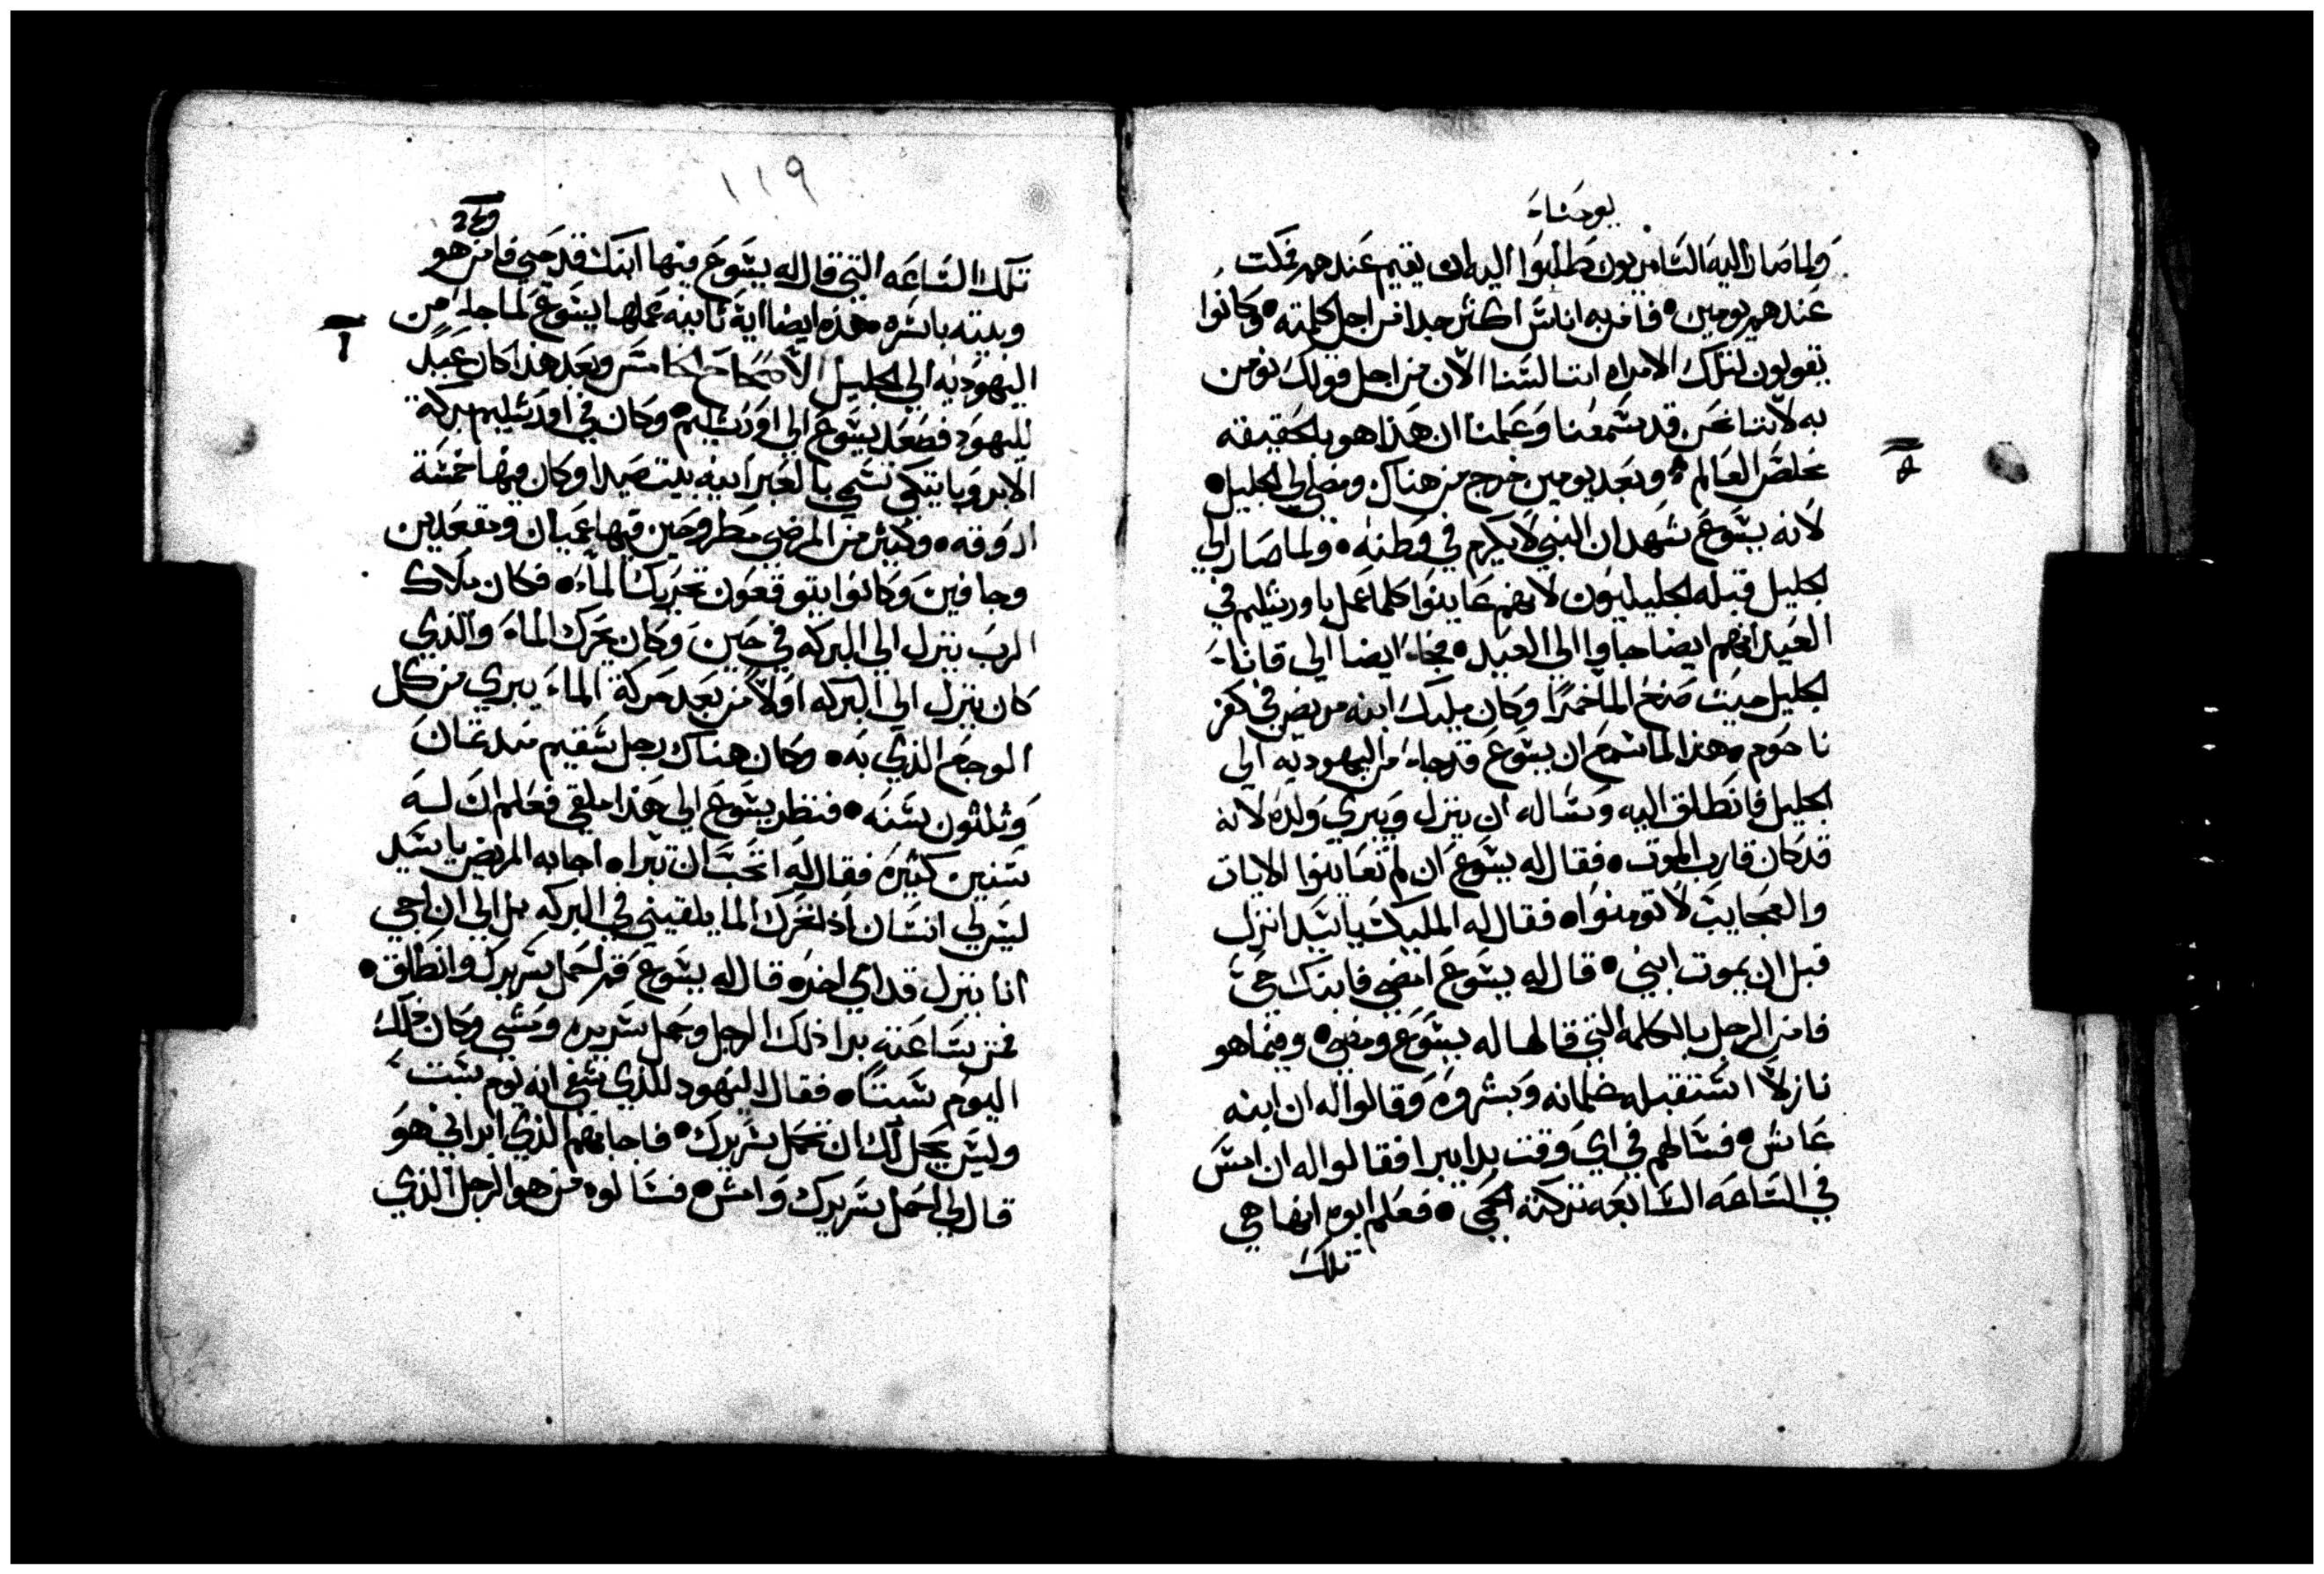 يوحنا
ولما صار اليه السامريون طلبوا اليه ان يقيم عندهم فمكت
عندهم يومين • فامن به اناس اكثر جدا من اجل كلمته • وكانوا
يقولون لتلك الامراه اننا لسنا الان من اجل قولك نومن
به لاننا نحن قد سمعنا وعلمنا ان هذا هو بالحقيقه
مخلص العالم • وبعد يومين خرج من هناك ومضى الى الجليل •
لانه يسوع شهد ان النبي لا يكرم في وطنه • ولما صار الي
الجليل قبله الجليليون لانهم عاينوا كلما عمل باورشليم في
العيد انهم ايضا جاوا الي العيد • فجاء ايضا الي قانا
الجليل حيث صنع الما خمرا وكان ملك ابنه مريض في كفر
ناحوم • هذا لما سمع ان يسوع قد جاء من اليهوديه الي
الجليل فانطلق اليه وساله ان ينزل ويبري ولده لانه
قد كان قارب الموت • فقال له يسوع ان لم تعاينوا الايات
والعجايب لا تومنوا • فقال له الملك يا سيد انزل
قبل ان يموت ابني • قال له يسوع امضي فابنك حي
فامن الرجل بالكلمه التي قالها له يسوع ومضي • وفيما هو
نازلا استقبله غلمانه وبشروه وقالوا له ان ابنه
عاش • فسالهم في اي وقت بدا يبرا فقالوا له ان امس
في الساعه السابعه تركته الحمي • فعلم ابوه انها هي
تلك
١١٩
تلك الساعه التي قال له يسوع فيها ابنك قد حيي فامن هو
وبيته باسره • هذه ايضا اية ثانيه عملها يسوع لما جاء من
اليهوديه الي الجليل الاصحاح الخامس وبعد هذا كان عيد
لليهود فصعد يسوع الي اورشليم • وكان في اورشليم بركه
الابروباتيكي تسمي بالعبرانيه بيت صيدا وكان فيها خمسة
اروقه • وكثير من المرضي مطروحين فيها عميان ومقعدين
وجافين وكانوا يتوقعون تحريك الماء • فكان ملاك
الرب ينزل الي البركه في حين وكان يحرك الماء والذي
كان ينزل الي البركه اولا من بعد حركة الماء يبري من كل
الوجع الذي به • وكان هناك رجل سقيم منذ ثمان
وثلثون سنه • فنظر يسوع الي هذا ملقي فعلم ان له
سنين كثيره فقال له اتحب ان تبرا • اجابه المريض يا سيد
ليس لي انسان اذا تحرك الما يلقيني في البركه بل الي ان اجي
انا ينزل قدامي اخر • قال له يسوع قم احمل سريرك وانطلق •
فمن ساعته برا ذلك الرجل وحمل سريره ومشي وكان ذلك
اليوم سبتا • فقال اليهود للذي شفي انه يوم سبت
وليس يحل لك ان تحمل سريرك • فاجابهم الذي ابراني هو
قال لي احمل سريرك وامش • فسالوه من هو الرجل الذي